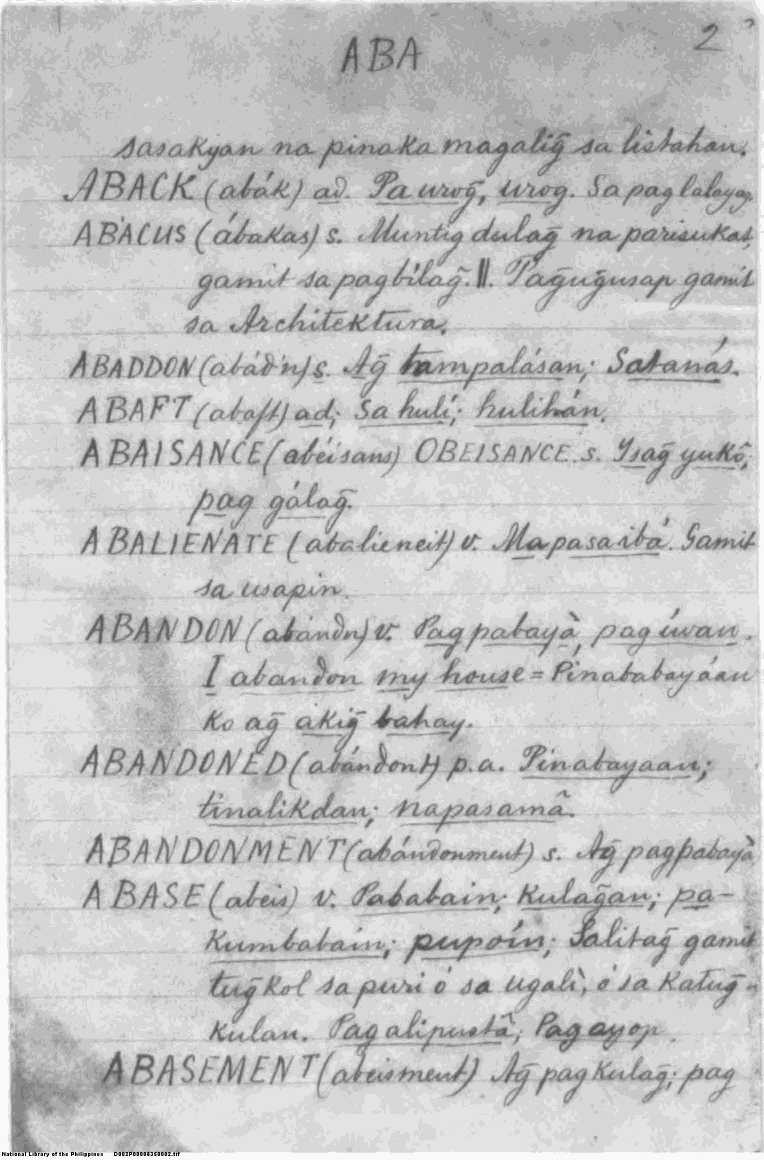 ABA
2
sasakyan na pinaka magalig̃ sa listahan.
ABACK (abák) ad. Pa urog̃, urog. Sa paglalayag.
ABACUS (ábakas) s. Muntig dulag̃ na parisukat,
gamit sa pagbílag̃. ||. Pag̃ug̃usap gamit
sa Architektura.
ABADDON (abád'n) s. Ag̃ tampalásan; Satanás.
ABAFT (abaft) ad; Sa hulí; hulihán.
ABAISANCE (abéisans) OBEISANCE. s. Ysag̃ yukô;
pag gálag̃.
ABALIENATE (abalieneit) v. Mapasaibá. Gamit
sa usapin.
ABANDON (abándn) v. Pagpabayà, pag íwan.
I abandon my house = Pinababayáan
ko ag̃ akig̃ bahay.
ABANDONED (abándont) p.a. Pinabayaan;
tinalikdan; napasamâ.
ABANDONMENT (abándonment) s. Ag̃ pagpabayà
ABASE (abeis) v. Pababain; Kulag̃an; pa-
kumbabain; pupoín; Salitag̃ gamit
tug̃kol sa puri ó sa ugalì, ó sa Katug̃-
kulan. Pagalipustâ; Pag ayop.
ABASEMENT (abeisment) Ag̃ pagkulag̃; pag
National Library of the Philippines D002P00006350002.tif